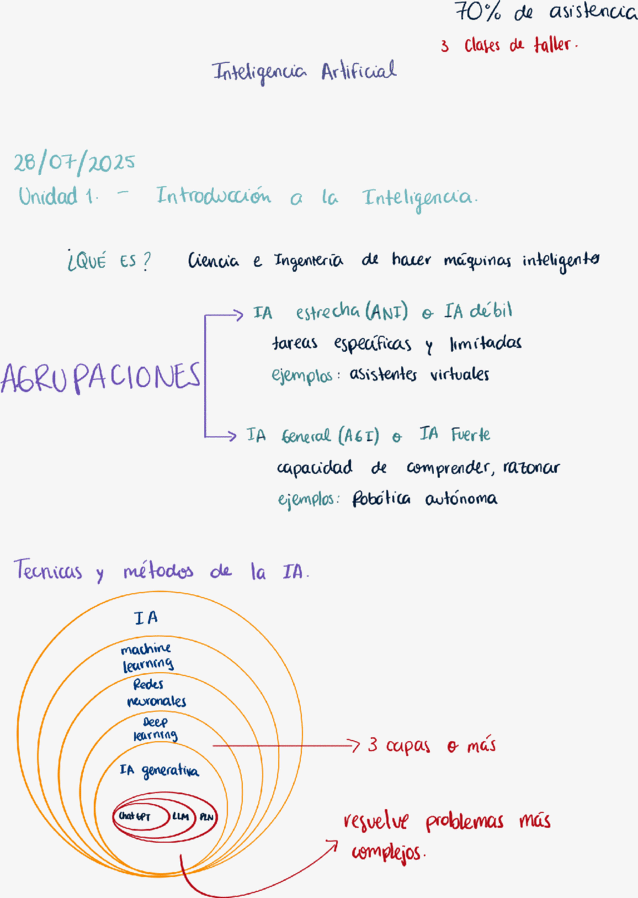 70% de asistencia
3 clases de taller.
Inteligencia Artificial
28/07/2025
Unidad 1. - Introducción a la Inteligencia.
¿QUÉ ES? Ciencia e Ingeniería de hacer máquinas inteligente
AGRUPACIONES
IA estrecha (ANI) o IA débil
tareas específicas y limitadas
ejemplos: asistentes virtuales
IA General (AGI) o IA Fuerte
capacidad de comprender, razonar
ejemplos: Robótica autónoma
Tecnicas y métodos de la IA.
IA
machine
learning
Redes
neuronales
Deep
learning
3 capas o más
IA generativa
Chat GPT LLM PLN
resuelve problemas más
complejos.